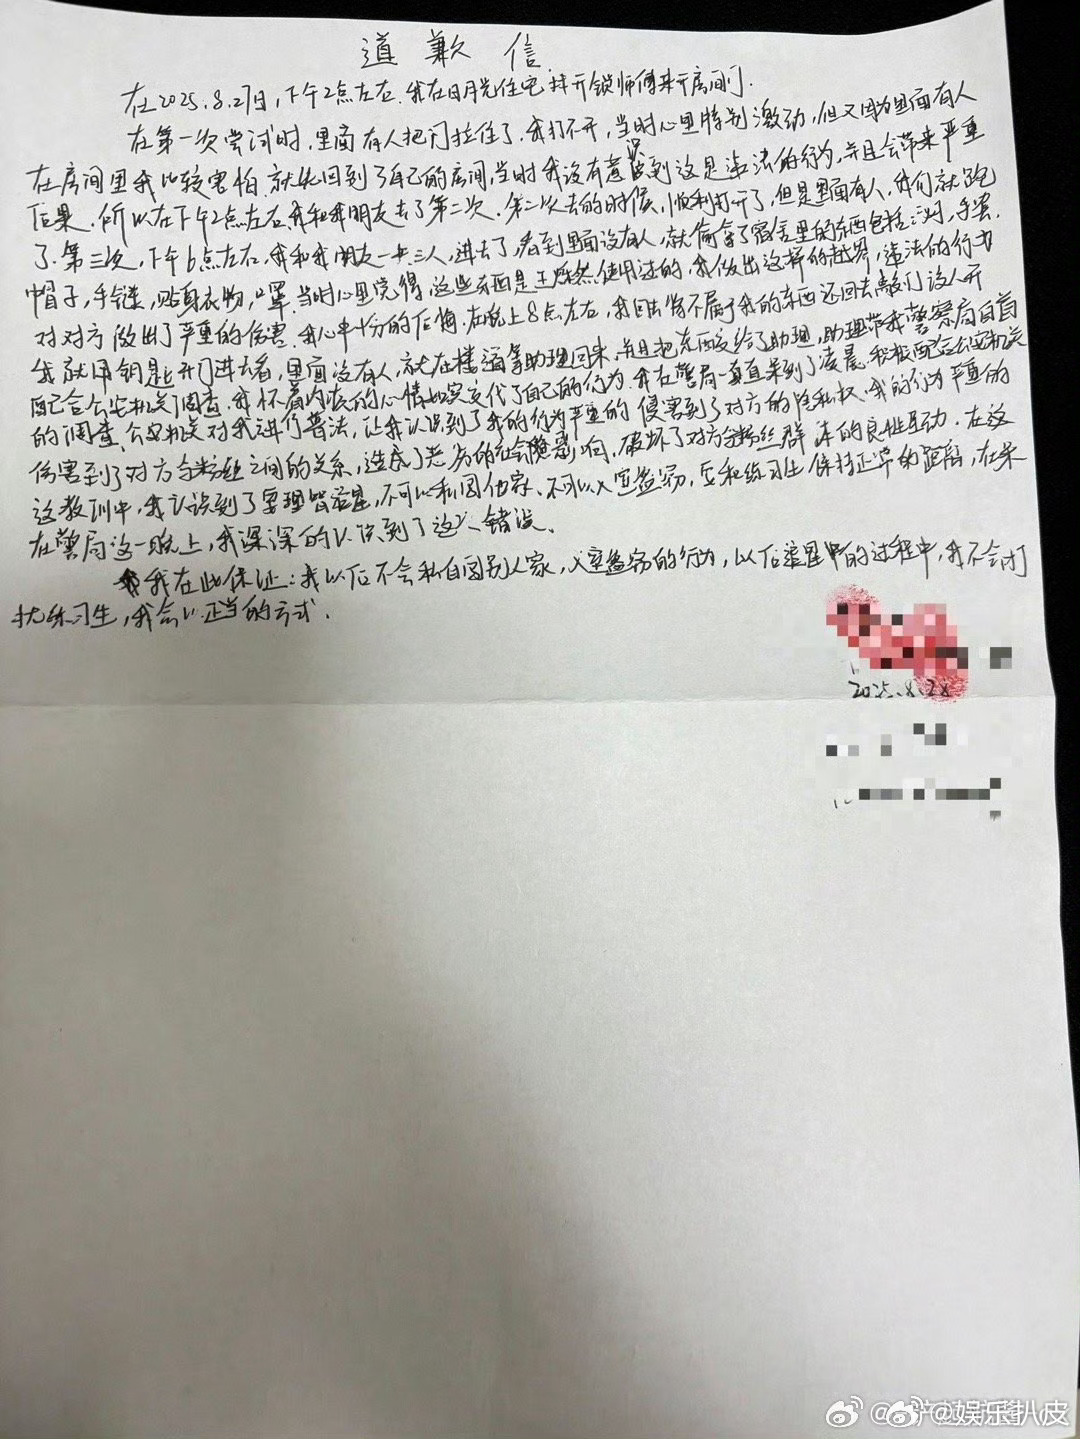 道歉信
在2025.8.27日,下午2点左右.我在日月光住宅,找开锁师傅来开房间门.
在第一次尝试时,里面有人把门拉住了.我打不开,当时心里特别激动,但又因为里面有人
在房间里我比较害怕.就先回到了自己的房间,当时我没有意识到这是违法的行为,并且会带来严重
后果.所以在下午2点左右,我和我朋友去了第二次.第二次去的时候,顺利打开了,但是里面有人,我们就跑
了.第三次,下午6点左右,我和我朋友一共三人,进去了,看到里面没有人,就偷拿了宿舍里的东西包括:,手套.
帽子,手链,贴身衣物,口罩.当时心里觉得,这些东西是王烁然使用过的,我做出这样的越界,违法的行为
对对方做出了严重的伤害.我心中十分的后悔.在晚上8点左右,我回去将不属于我的东西还回去敲门没人开
我就用钥匙开门进去看,里面没有人,就在楼道拿助理回来,并且把东西交给了助理,助理带我警察局自首
配合公安机关调查.我怀着内疚的心情如实交代了自己的行为.我在警局一直呆到了凌晨.积极配合公安机关
的调查.公安机关对我进行普法,让我认识到了我的行为严重的侵害到了对方的隐私权.我的行为严重的
伤害到了对方与粉丝之间的关系,造成了恶劣的社会影响,破坏了对方与粉丝群体的良性互动.在这
这教训中,我认识到了要理智追星,不可以私闯他家、不可以入室盗窃,应和练习生保持正常的距离,在来
在警局这一晚上,我深深的认识到了这个错误.
我在此保证:我以后不会私自闯别人家,入室盗窃的行为,以后追星中的过程中,我不会打
扰练习生,我会以正当的方式.
2025.8.28
@娱乐扒皮